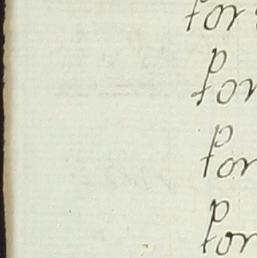 for
for
for
for